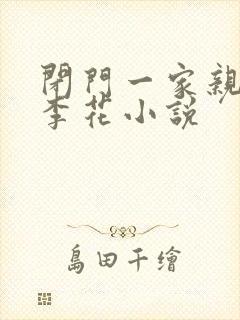 閉門一家親
李花小說
島田千繪